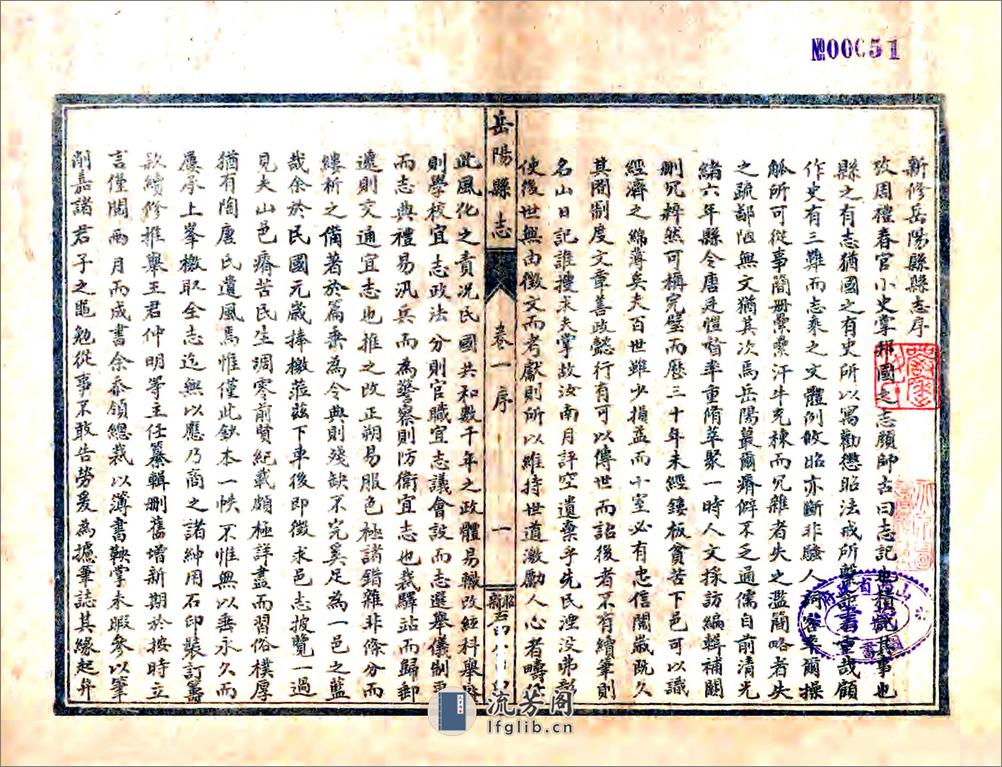 №00051
新修岳陽縣縣志序
攷周禮春官小史掌邦國之志顏師古曰志記也積載其事也
縣之有志猶國之有史所以寓勸懲昭法戒所繫重哉顧
作史有三難而志乘之文體例攸昭亦斷非驗人何容率爾操
觚所可從事簡冊縈縈汗牛充棟而冗雜者失之濫簡略者失
之疏鄙陋無文猶其次焉岳陽蕞爾瘠僻不乏通儒自前清光
緒六年縣令唐廷愷督率重脩萃聚一時人文採訪編輯補闕
刪冗粹然可稱完璧而歷三十年未經鋟板貧苦下邑可以識
經濟之綿薄矣夫百世雖少損益而十室必有忠信閱歲既久
其間制度文章善政懿行有可以傳世而詔後者不有續筆則
名山日記誰搜求夫掌故汝南月評空遺棄乎先民湮沒弗彰
使後世無由徵文而考獻則所以維持世道激勵人心者疇
岳陽縣志
卷一序
一
此風化之責況民國共和數千年之政體易轍改絃科舉廢
則學校宜志政法分則官職宜志議會設而志選舉儀制更
而志典禮易汛兵而為警察則防衛宜志也裁驛站而歸郵
遞則交通宜志也推之改正朔易服色極諸錯雜非條分而
縷析之備著於篇乗為令典則殘缺不完奚足為一邑之藍
哉余於民國元歲捧檄蒞茲下車後即徵求邑志披覽一過
見夫山邑瘠苦民生凋零前賢紀載頗極詳盡而習俗樸厚
猶有陶唐氏遺風焉惟僅此鈔本一帙不惟無以垂永久而
屢承上峯檄取全志迄無以應乃商之諸紳用石印裝訂書
欵續修推舉王君仲明等主任纂輯刪舊增新期於按時立
言僅閱兩月而成書余忝領總裁以簿書鞅掌未暇參以筆
削嘉諸君子之黽勉從事不敢告勞爰為攄筆誌其緣起弁
流芳阁
lfglib.cn